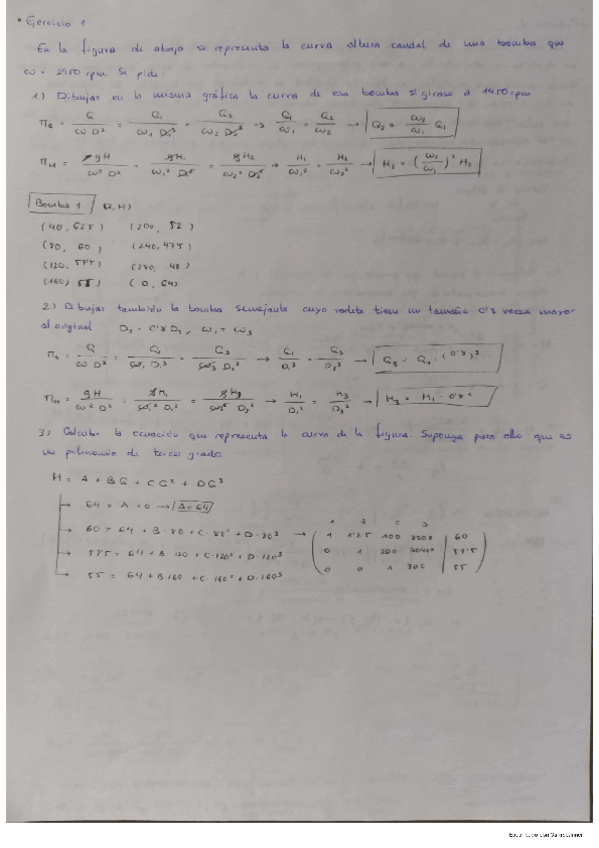 • Ejercicio 1
En la figura de abajo se representa la curva altura caudal de una bomba que
ω = 2950 rpm. Se pide:
1.) Dibujar en la misma gráfica la curva de esa bomba si girase a 1450 rpm
π_Q = Q / ω D³ = Q₁ / ω₁ D₁³ = Q₂ / ω₂ D₂³ ⇒ Q₁ / ω₁ = Q₂ / ω₂ → Q₂ = ω₂ / ω₁ Q₁
π_H = gH / ω² D² = gH₁ / ω₁² D₁² = gH₂ / ω₂² D₂² → H₁ / ω₁² = H₂ / ω₂² → H₂ = (ω₂ / ω₁)² H₁
Bomba 1 (Q, H)
(40, 62'5) (200, 52)
(80, 60) (240, 47'5)
(120, 57'5) (280, 40)
(160, 55) (0, 64)
2.) Dibujar también la bomba semejante cuyo rodete tiene un tamaño 0'8 veces mayor
al original D₃ = 0'8 D₁, ω₁ = ω₃
π_Q = Q / ω D³ = Q₁ / ω₁ D₁³ = Q₃ / ω₃ D₃³ → Q₁ / D₁³ = Q₃ / D₃³ → Q₃ = Q₁ · (0'8)³
π_H = gH / ω² D² = gH₁ / ω₁² D₁² = gH₃ / ω₃² D₃² → H₁ / D₁² = H₃ / D₃² → H₃ = H₁ · 0'8²
3.) Calcular la ecuación que representa la curva de la figura. Suponga para ello que es
un polinomio de tercer grado
H = A + BQ + CQ² + DQ³
→ 64 = A + 0 → A = 64
→ 60 = 64 + B · 80 + C · 80² + D · 80³ →
→ 57'5 = 64 + B · 120 + C · 120² + D · 120³
→ 55 = 64 + B · 160 + C · 160² + D · 160³